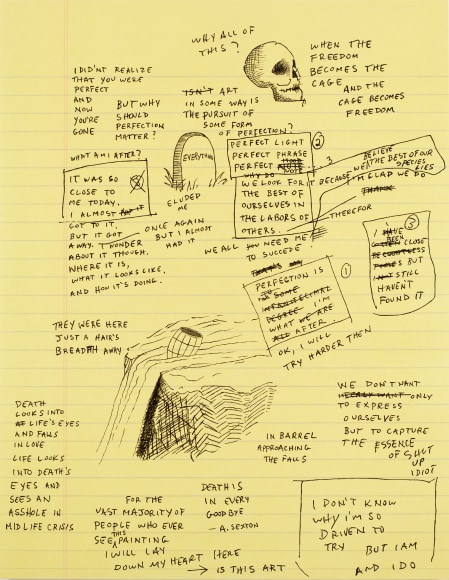 WHY ALL OF
THIS?
WHEN THE
FREEDOM
BECOMES THE
CAGE AND THE
CAGE BECOMES
FREEDOM
I DIDN'T REALIZE
THAT YOU WERE
PERFECT
AND
NOW
YOU'RE
GONE
BUT WHY
SHOULD
PERFECTION
MATTER?
ISN'T ART
IN SOME WAY IS
THE PURSUIT OF
SOME FORM
OF PERFECTION?
WHAT AM I AFTER?
IT WAS SO
CLOSE TO
ME TODAY,
I ALMOST
GOT TO IT,
BUT IT GOT
AWAY. I WONDER
ABOUT IT THOUGH.
WHERE IT IS,
WHAT IT LOOKS LIKE,
AND HOW IT'S DOING.
EVERYTHING
ELUDED
ME
ONCE AGAIN
BUT I ALMOST
HAD IT
2
PERFECT LIGHT
PERFECT PHRASE
PERFECT NOTE
WHY DO
WE LOOK FOR IT BECAUSE
THE BEST OF
OURSELVES IN
THE LABORS OF
OTHERS.
3
BELIEVE
THE BEST OF OUR
SPECIES
I'M GLAD WE DO
THANK
THEREFOR
WE ALL YOU NEED ME
TO SUCCEDE!
3
I HAVE
BEEN CLOSE
BUT
STILL
HAVEN'T
FOUND IT
1
PERFECTION IS
SOME
INFINITECIMAL
DEGREE I'M
WHAT WE ARE
ALL AFTER.
OK, I WILL
TRY HARDER THEN
THEY WERE HERE
JUST A HAIR'S
BREADTH AWAY
DEATH
LOOKS INTO
LIFE'S EYES
AND FALLS
IN LOVE
LIFE LOOKS
INTO DEATH'S
EYES AND
SEES AN
ASSHOLE IN
MIDLIFE CRISIS
IN BARREL
APPROACHING
THE FALLS
WE DON'T WANT
MERELY WANT ONLY
TO EXPRESS
OURSELVES
BUT TO CAPTURE
THE ESSENCE
OF SHUT
UP
IDIOT
FOR THE
VAST MAJORITY OF
PEOPLE WHO EVER
SEE THIS PAINTING
I WILL LAY
DOWN MY HEART HERE
→ IS THIS ART
DEATH IS
IN EVERY
GOODBYE
- A. SEXTON
I DON'T KNOW
WHY I'M SO
DRIVEN TO
TRY BUT I AM
AND I DO